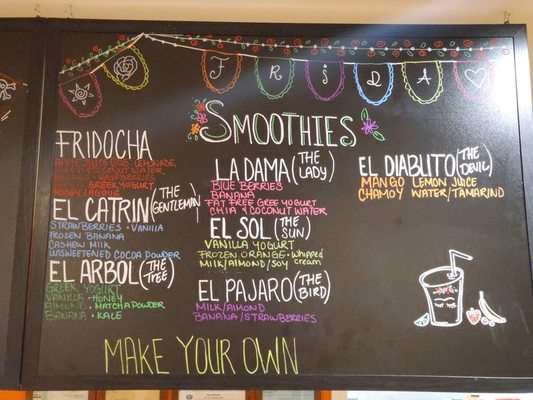 FRiDA
SMOOTHIES
FRIDOCHA
APPLE JUICE LEMONADE,
COCONUT WATER
RASPBERRIES
GREEK YOGURT
HONEY/AGAVE
EL CATRIN (THE GENTLEMAN)
STRAWBERRIES • VANILLA
FROZEN BANANA
CASHEW MILK
UNSWEETENED COCOA POWDER
EL ARBOL (THE TREE)
GREEK YOGURT
VANILLA • HONEY
ALMOND • MATCHA POWDER
BANANA • KALE
LA DAMA (THE LADY)
BLUE BERRIES
BANANA
FAT FREE GREE YOGURT
CHIA & COCONUT WATER
EL SOL (THE SUN)
VANILLA YOGURT
FROZEN ORANGE • WHIPPED
MILK/ALMOND/SOY CREAM
EL PAJARO (THE BIRD)
MILK/ALMOND
BANANA/STRAWBERRIES
EL DIABLITO (THE DEVIL)
MANGO LEMON JUICE
CHAMOY WATER/TAMARIND
MAKE YOUR OWN